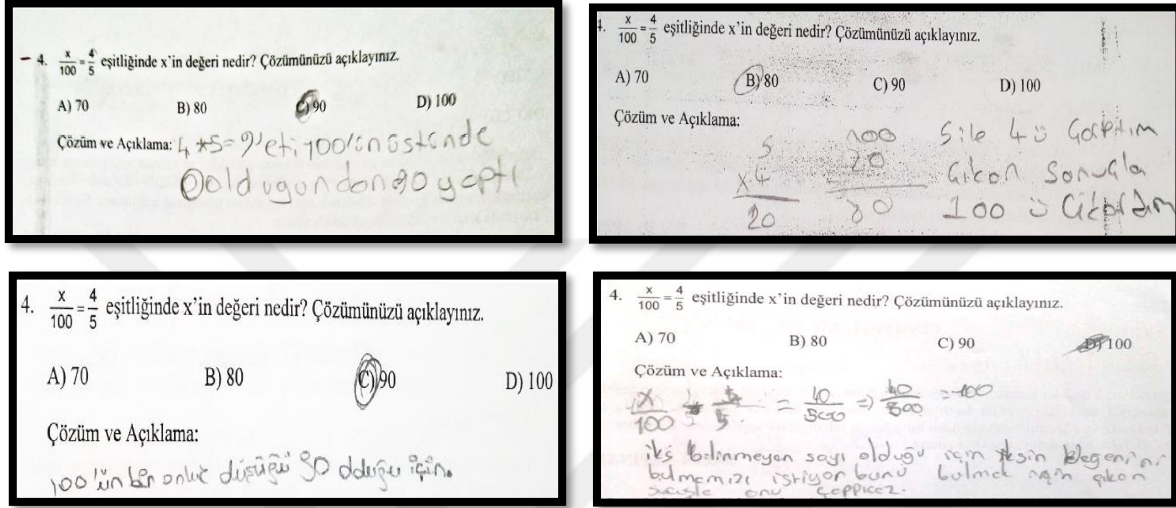 4. x/100 = 4/5 eşitliğinde x'in değeri nedir? Çözümünüzü açıklayınız.
A) 70 B) 80 C) 90 D) 100
Çözüm ve Açıklama: 4 + 5 = 9'eti 100'ün üstünde
0 oldugundan 90 yaptı
4. x/100 = 4/5 eşitliğinde x'in değeri nedir? Çözümünüzü açıklayınız.
A) 70 B) 80 C) 90 D) 100
Çözüm ve Açıklama:
5
x4
20
100
20
80
5 ile 4ü Çarptım
Çıkan Sonuçla
100 ü
4. x/100 = 4/5 eşitliğinde x'in değeri nedir? Çözümünüzü açıklayınız.
A) 70 B) 80 C) 90 D) 100
Çözüm ve Açıklama:
100'ün bir onluk düşüğü 90 olduğu için.
4. x/100 = 4/5 eşitliğinde x'in değeri nedir? Çözümünüzü açıklayınız.
A) 70 B) 80 C) 90 D) 100
Çözüm ve Açıklama:
x/100 4/5 = 40/500 => 40/500 = 100
iki bilinmeyen sayı olduğu için
bulmamızı istiyor bunu bulmak için çıkan
onu